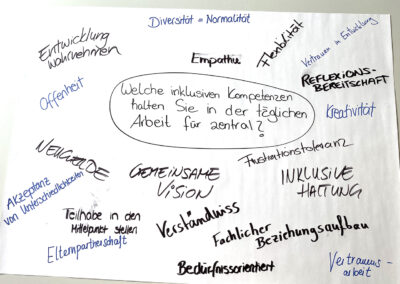 Diversität = Normalität
Entwicklung
wahrnehmen
Empathie
Flexibilität
Vertrauen in Entwicklung
REFLEXIONS-
BEREITSCHAFT
Offenheit
Kreativität
Welche inklusiven Kompetenzen
halten Sie in der täglichen
Arbeit für zentral?
NEUGIERDE
GEMEINSAME
VISION
Frustrationstoleranz
INKLUSIVE
HALTUNG
Akzeptanz
von Unterschiedlichkeiten
Teilhabe in den
Mittelpunkt stellen
Verständniss
Fachlicher
Beziehungsaufbau
Elternpartnerschaft
Bedürfnissorientiert
Vertrauens-
arbeit